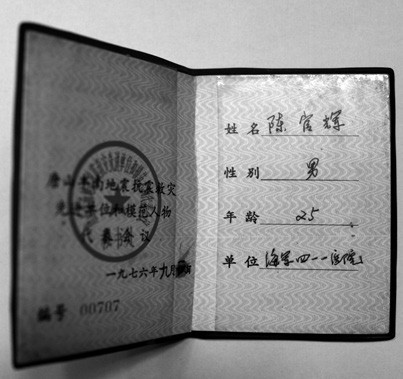 唐山丰南地震抗震救灾
先进单位和模范人物
代表会议
一九七六年九月
编号 00707
姓名 陈官辉
性别 男
年龄 25
单位 海军四一一医院